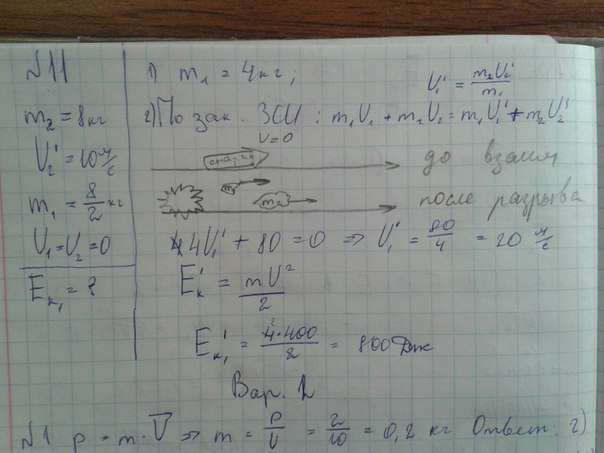 №11
m₂ = 8кг
U₂' = 10 м/с
m₁ = 8/2 кг
U₁ = U₂ = 0
Eк₁ = ?
1) m₁ = 4кг;
U₁' = m₂U₂'/m₁
2) По зак. ЗСИ: m₁U₁ + m₂U₂ = m₁U₁' + m₂U₂'
U=0
снаряд
до взаим
m₁
m₂
после разрыва
4U₁' + 80 = 0 => U₁' = 80/4 = 20 м/с
Eк' = mU²/2
Eк₁' = 4·400/2 = 800Дж
Вар. 2
№1 p = m·V => m = P/U = 2/10 = 0,2 кг Ответ: 2)